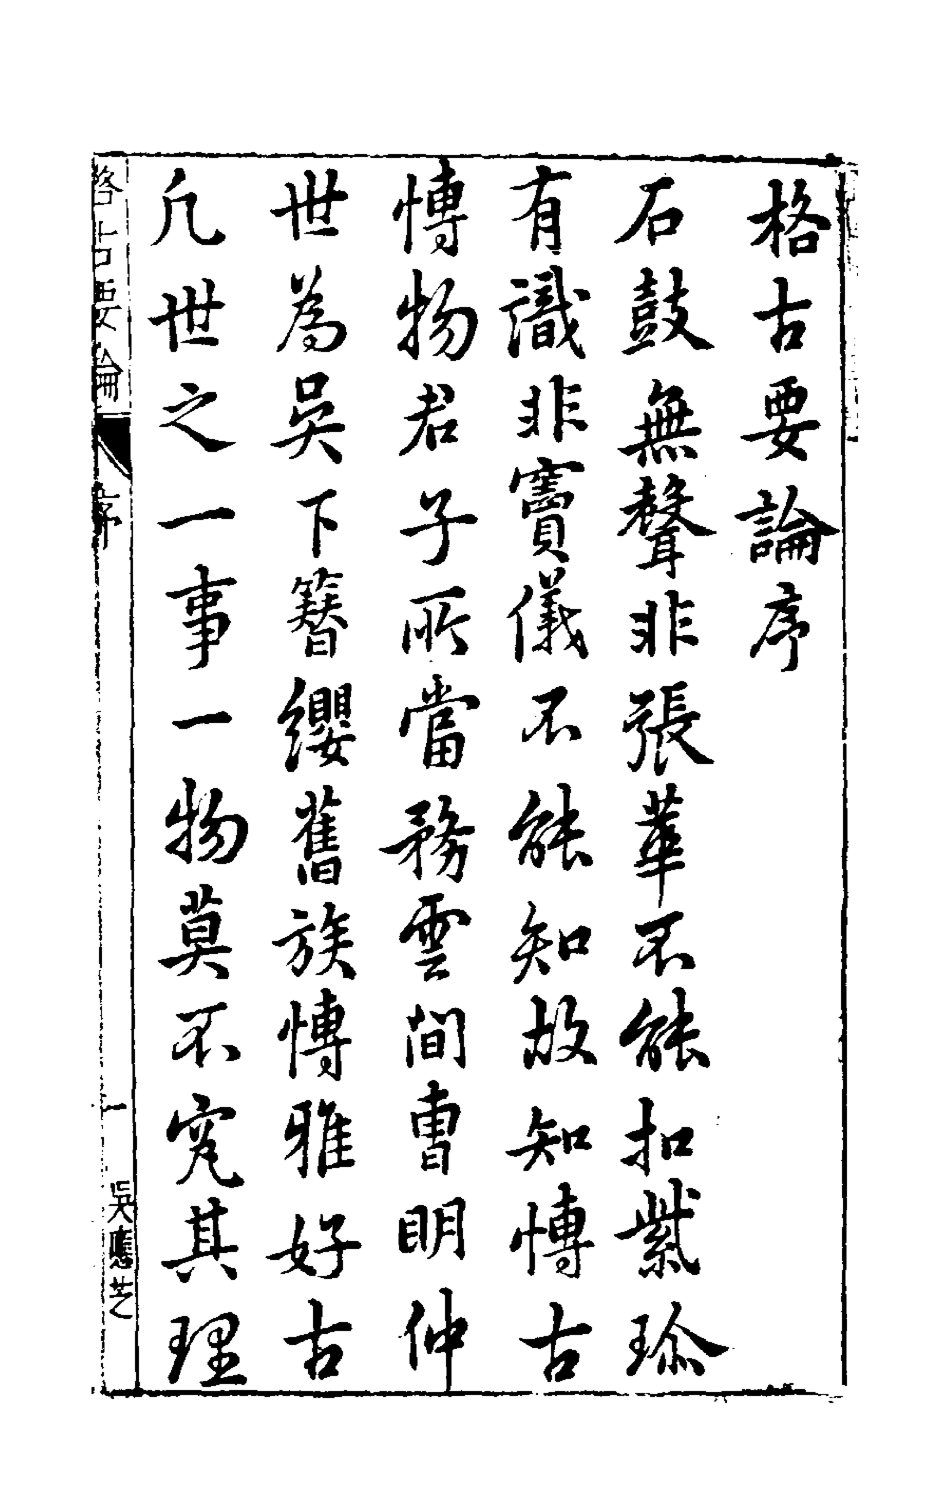 格古要論序
石鼓無聲非張華不能扣紫珍
有識非竇儀不能知故知博古
博物君子所當務雲間曹明仲
世為吳下簪纓舊族博雅好古
凡世之一事一物莫不究其理
格古要論 序 一 吳應芝